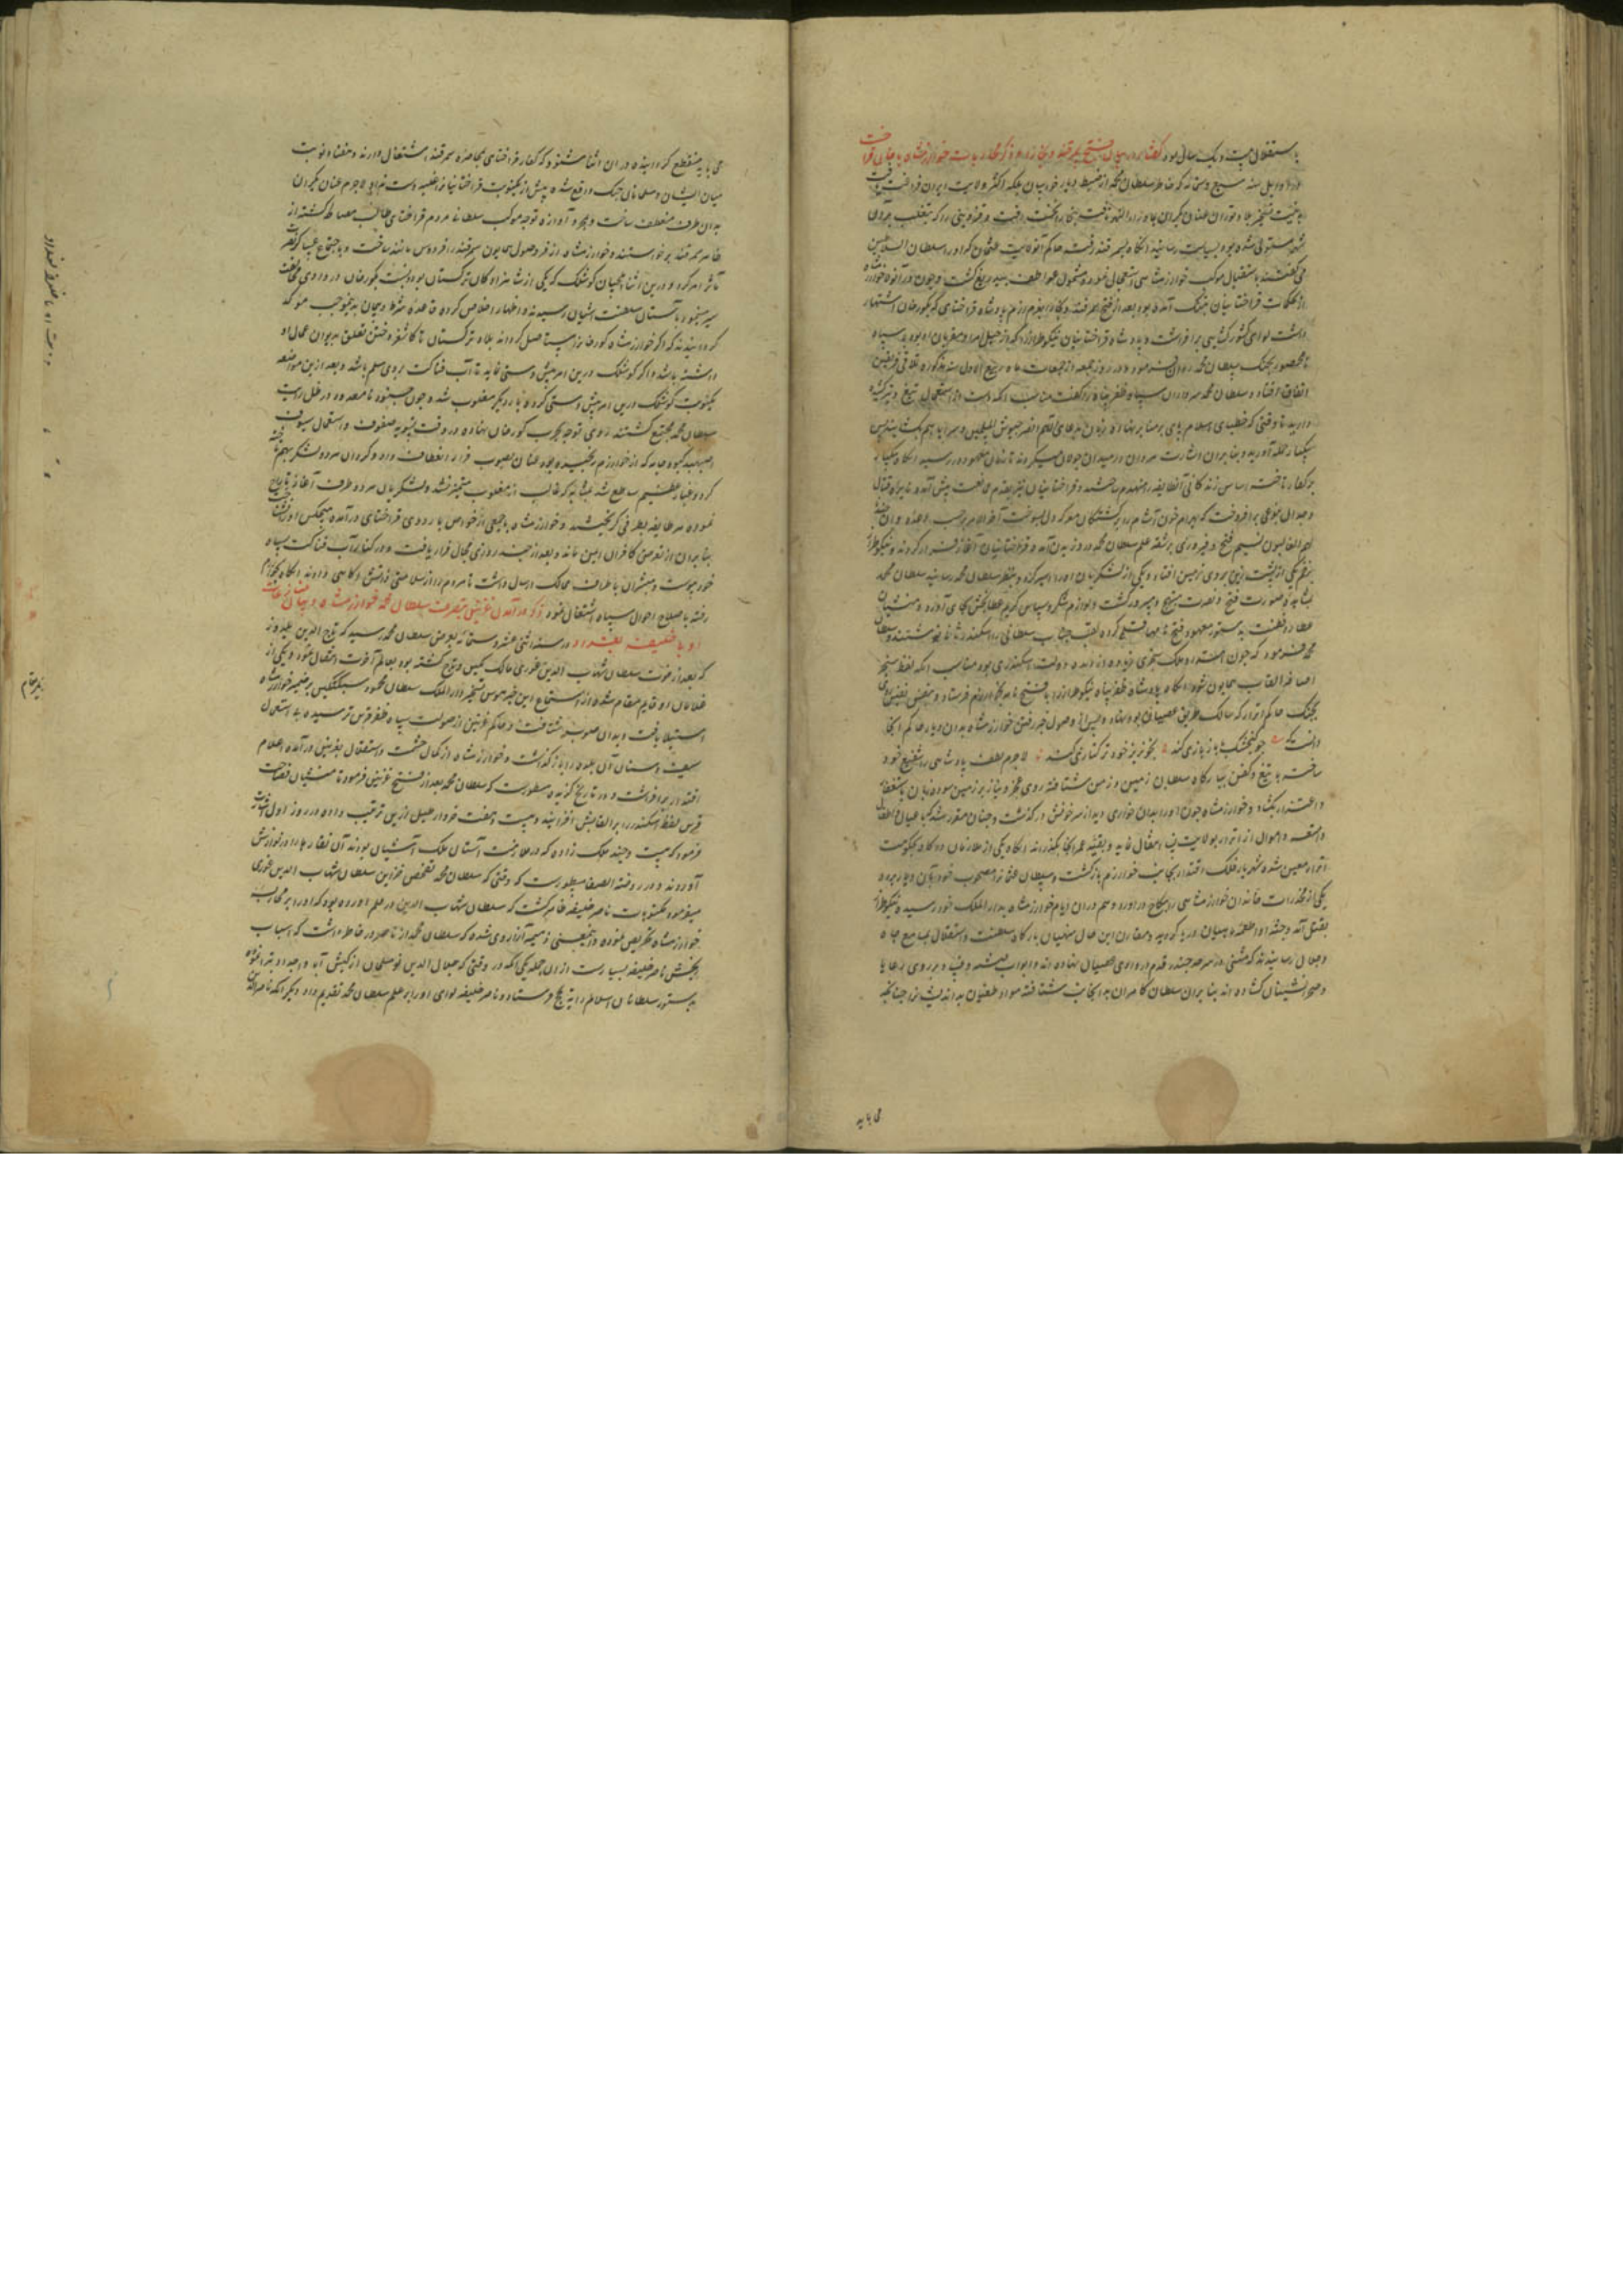 باستقلال بیست و یک سال بود گفتار در بیان فتح سمرقند و بخارا و ذکر محاربات خوارزمشاه با خان قراخت
در اوایل سنه سبع و ستمائه که خاطر سلطان محمد از ضبط دیار خراسان بلکه اکثر ولایت ایران فراغت یافت
عنان یکران بجانب ماوراء النهر تافت بخارا
شهر مستولی شده بود بسیاست رسانید آنگاه بسمرقند رفت حاکم آنولایت عثمان که او را سلطان السلاطین
می گفتند باستقبال موکب خوارزمشاهی استعجال نمود و مشمول عواطف بیدریغ گشت و چون در آنولا خوارزمشاه
از تحکمات قراختائیان بتنگ آمده بود بعد از فتح سمرقند و بخارا بعزم رزم پادشاه قراختای که بگورخان اشتهار
داشت لوای کشورکشایی برافراشت و پادشاه قراختائیان تینکوطراز را که از خیل امرا و مقربان او بود با سپاه
نامحصور بجنگ سلطان محمد روان فرمود و در روز جمعه از جمعات ماه ربیع الاول سنه مذکوره تلاقی فریقین
اتفاق افتاد و سلطان محمد سرداران سپاه ظفر پناه را گفت مناسب آنکه دست از استعمال تیغ و تیر کشیده
دارید تا وقتی که خطبای اسلام پای بر منابر نهاده زبان بدعای اللهم انصر جیوش المسلمین و سرایاهم بگشایند پس
یکبار حمله آورید و بنا بران اشارت مردان در میدان جولان میکردند تا زمان معهود در رسید آنگاه بیکبار
بر کفار تاخته اساس زندگانی آنطایفه را منهدم ساختند و قراختائیان نیز بقدم ممانعت پیش آمده نایره قتال
و جدال بنوعی برافروخت که بهرام خون آشام را بر کشتگان معرکه دل بسوخت آخر الامر بر حسب وعده و ان جندنا
لهم الغالبون نسیم فتح و فیروزی بر شقه علم سلطان محمد وزیدن آمد و قراختائیان آغاز فرار کردند و تینکوطراز
بزخم یکی از پشت زین بروی زمین افتاد و یکی از لشکریان او را اسیر کرد و بنظر سلطان محمد رسانید سلطان محمد
بمشاهده صورت فتح و نصرت مبتهج و مسرور گشت و لوازم شکر و سپاس کریم عطابخش بجای آورد و منشیان
عطارد فطنت بدستور معهود فتح نامها قلمی کرده لقب جناب سلطانی را اسکندر ثانی نوشتند و سلطان
محمد فرمود که چون امتداد ملک سنجری زیاده از مدت دولت اسکندری بود مناسب آنکه لفظ سنجر
اضافه القاب همایون شود آنگاه پادشاه ظفر پناه تینکوطراز را با فتح نامه بخوارزم فرستاد و بنفس نفیس روی
بجنگ حاکم اترار که سالک طریق عصیان بود نهاد و پس از وصول خبر رفتن خوارزمشاه بدان دیار حاکم آنجا
دانست که چو گنجشک با باز بازی کند بخونریز خود ترکتازی کند لاجرم لطف پادشاهی را شفیع خود
ساخته با تیغ و کفن ببارگاه سلطان زمین و زمن شتافته روی عجز و نیاز بر زمین سوده زبان باستغفار
و اعتذار بگشاد و خوارزمشاه چون او را بدان خواری دید از سر خونش درگذشت و چنان مقرر شد که با عیال و اطفال
و امتعه و اموال از اترار بولایت نسا انتقال نماید و بقیه عمر آنجا بگذراند آنگاه یکی از ملازمان درگاه بحکومت
اترار معین شده شهریار فلک اقتدار بجانب خوارزم بازگشت و سلطان عثمانرا مصحوب خود بآن دیار برده
یکی از مخدرات خاندان خوارزمشاهی را بنکاح او درآورد و هم دران ایام خوارزمشاه بدار الملک خود رسیده تینکوطراز
بقتل آمد و جثه او را طعمه ماهیان دریا گردید و مقارن این حال منهیان بارگاه سلطنت و استقلال بمسامع جاه
و جلال رسانیدند که متنفی در سرحد جند قدم در وادی عصیان نهاده اند و ابواب بر روی رعایا
و صحرا نشینان گشاده اند بنا بران سلطان کامران بدانجانب شتافته مواد طغیان بداندیشانرا چنانکه
می باید
می باید منقطع گردانیده دران اثنا شنود که کفار قراختای بمحاصره سمرقند اشتغال دارند و هفتاد نوبت
میان ایشان و مسلمانان جنگ واقع شده بیش از یکنوبت قراختائیانرا غلبه دست نداد لاجرم عنان یکران
بدان طرف منعطف ساخت و بمجرد آوازه توجه موکب سلطانی مردم قراختای طالب مصالحه گشته از
ظاهر سمرقند برخاستند و خوارزمشاه از فر وصول همایون سمرقند را فردوس مانند ساخت و باجتماع عساکر نصرت
مآثر امر کرد و درین اثنا ایلچیان کوشلک که یکی از شاهزادگان ترکستان بود و نسبت بگورخان در وادی مخالفت
سیر مینمود بآستان سلطنت آشیان رسیدند و اظهار اخلاص کرده قاعده شرط و پیمان بدینموجب موکد
گردانیدند که اگر خوارزمشاه گورخانرا مستاصل گرداند بلاد ترکستان تا کاشغر و ختن تعلق بدیوان عمال او
داشته باشد و اگر کوشلک درین امر پیش دستی نماید تا آب فناکت بروی مسلم باشد و بعد ازین مواضعه
یکنوبت کوشلک درین امر پیش دستی کرده بار دیگر مغلوب شد و چون جنود نامعدود در ظل رایت
سلطان محمد مجتمع گشتند روی توجه بحرب گورخان نهاد و در وقت تسویه صفوف و استعمال سیوف
اصبهبد کبود جامه که از خوارزم رنجیده بود عنان بصوب فرار انعطاف داد و گردان هر دو لشکر بهم تاخته
گرد و غبار عظیم ساطع شد بمثابه که غالب از مغلوب متمیز نشد و لشکریان هر دو طرف آغاز تاراج
نموده هر طایفه بطرفی گریختند و خوارزمشاه با جمعی از خواص باردوی قراختای درآمده هیچکس او را نشناخت
بنا بران از تعرض کافران ایمن ماند و بعد از چند روزی مجال فرار یافت و در کنار آب فناکت بسپاه
خود پیوست و مبشران باطراف ممالک ارسال داشت تا مردم را از سلامتی ذاتش آگاهی دادند آنگاه بخوارزم
رفته باصلاح احوال سپاه اشتغال نمود ذکر درآمدن غزنین بتصرف سلطان محمد خوارزمشاه و بیان مخالفت
او با خلیفه بغداد در سنه اثنی عشر و ستمائه بعرض سلطان محمد رسید که تاج الدین یلدوز
که بعد از فوت سلطان شهاب الدین غوری مالک نگین و تاج گشته بود بعالم آخرت انتقال نمود و یکی از
غلامان او قایم مقام شده از استماع این خبر هوس تسخیر دار الملک سلطان محمود سبکتکین بر ضمیر خوارزمشاه
استیلا یافت و بدان صوب شتافت و حاکم غزنین از صولت سپاه ظفر قرین ترسیده بی استعمال
سیف و سنان آن بلده را بازگذاشت و خوارزمشاه از کمال حشمت و استقلال بغزنین درآمده اعلام
اقتدار برافراشت و در تاریخ گزیده مسطورست که سلطان محمد بعد از فتح غزنین فرمود تا منشیان فصاحت
قرین لفظ اسکندر را بر القابش افزایند و بیست و هفت خروار طبل زرین ترتیب داده در روز اول
فرمود که بیست و هفت ملک زاده که در ملازمت آستان ملک آشیان بودند آن نقاره ها را در نوازش
آوردند و در روضة الصفا مسطورست که وقتی که سلطان محمد تفحص خزاین سلطان شهاب الدین غوری
میفرمود مکتوبات ناصر خلیفه ظاهر گشت که سلطان شهاب الدین در قلم آورده بود که او را بر محاربت
خوارزمشاه تحریص نموده و اینمعنی ضمیمه آزاری شده که سلطان محمد از ناصر در خاطر داشت که اسباب
رنجش ناصر خلیفه بسیارست از ان جمله یکی آنکه در وقتی که جلال الدین نومسلمان از کیش آبا و اجداد تبرا نموده
بدستور سلاطین اسلام رایة بحج فرستاد و ناصر خلیفه لوای او را بر علم سلطان محمد تقدیم داد و دیگر آنکه ناصر